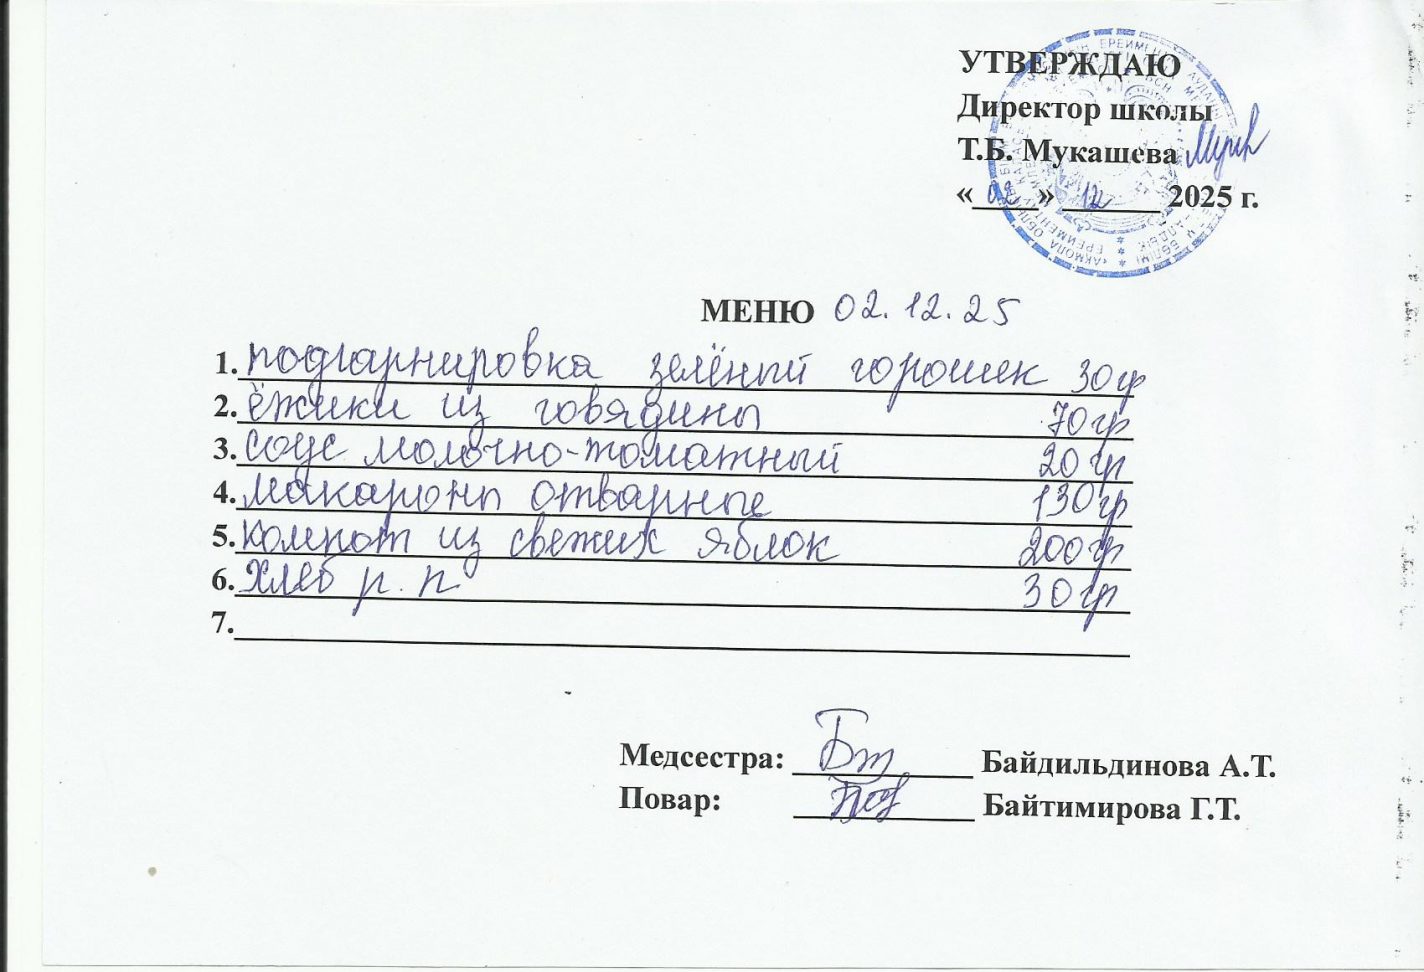 УТВЕРЖДАЮ
Директор школы
Т.Б. Мукашева
«02» 12 2025 г.
МЕНЮ 02.12.25
1. подгарнировка зелёный горошек 30гр
2. ёжики из говядины 70гр
3. соус молочно-томатный 20гр
4. макароны отварные 130гр
5. компот из свежих яблок 200гр
6. хлеб р.п 30гр
7.
Медсестра: Байдильдинова А.Т.
Повар: Байтимирова Г.Т.